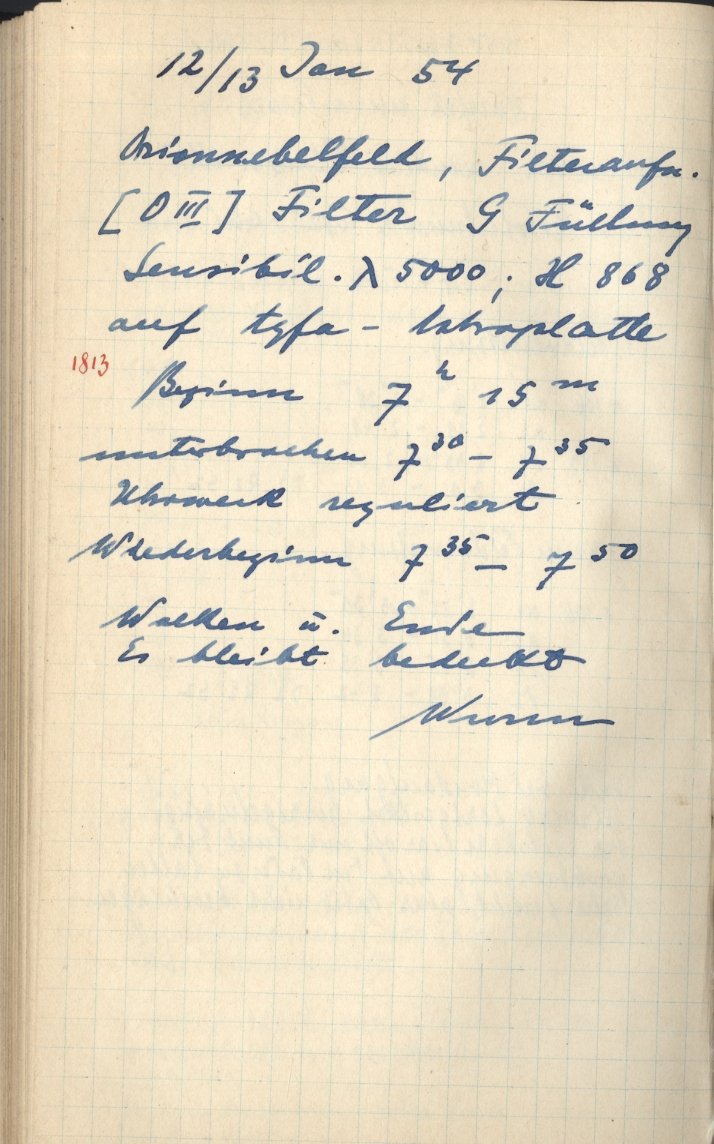 12/13 Jan 54
Orionnebelfeld, Filteraufn.
[O III] Filter G Füllung
Sensibil. λ 5000; H 868
auf Agfa - Astroplatte
1813
Beginn 7 h 15 m
unterbrochen 7 30 - 7 35
Uhrwerk reguliert
Wiederbeginn 7 35 - 7 50
Wolken u. Ende
Es bleibt bedeckt
Wurm